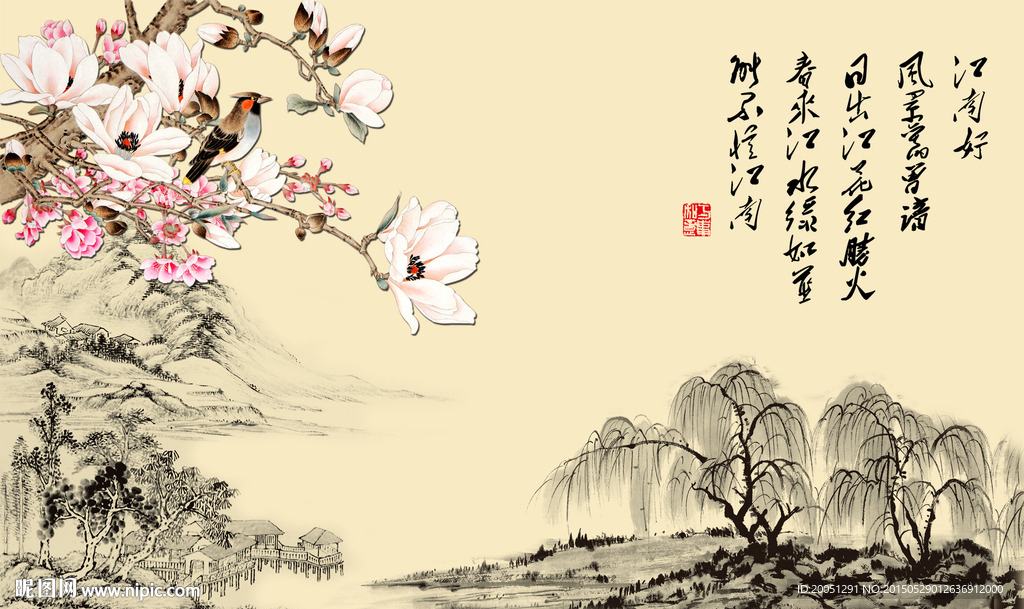 江南好
风景旧曾谙
日出江花红胜火
春来江水绿如蓝
能不忆江南
昵图网 www.nipic.com
ID:20051291 NO:20150529012636912000